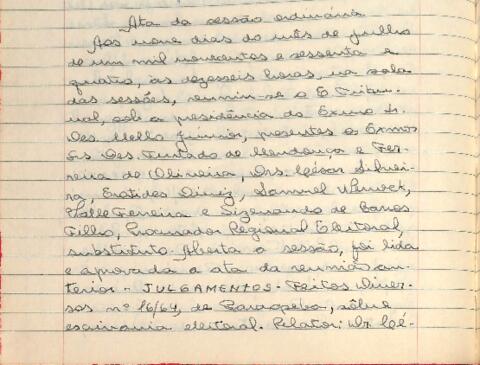 Ata da sessão ordinária
Aos nove dias do mês de julho
de um mil novecentos e sessenta e
quatro, às dezesseis horas, na sala
das sessões, reuniu-se o E. Tribu-
nal, sob a presidência do Exmo Sr.
Des. Mello Júnior, presentes os Exmos
Srs. Des. Furtado de Mendonça e Fer-
reira de Oliveira, Drs. César Silvei-
ra, Eratides Diniz, Samuel
Valle Ferreira e Sizenando de Barros
Filho, Procurador Regional Eleitoral,
substituto. Aberta a sessão, foi lida
e aprovada a ata da reunião an-
terior - JULGAMENTOS - Feitos Diver-
sos nº 16/64, de Paraopeba, sôbre
escrivania eleitoral. Relator: Dr. Cé-